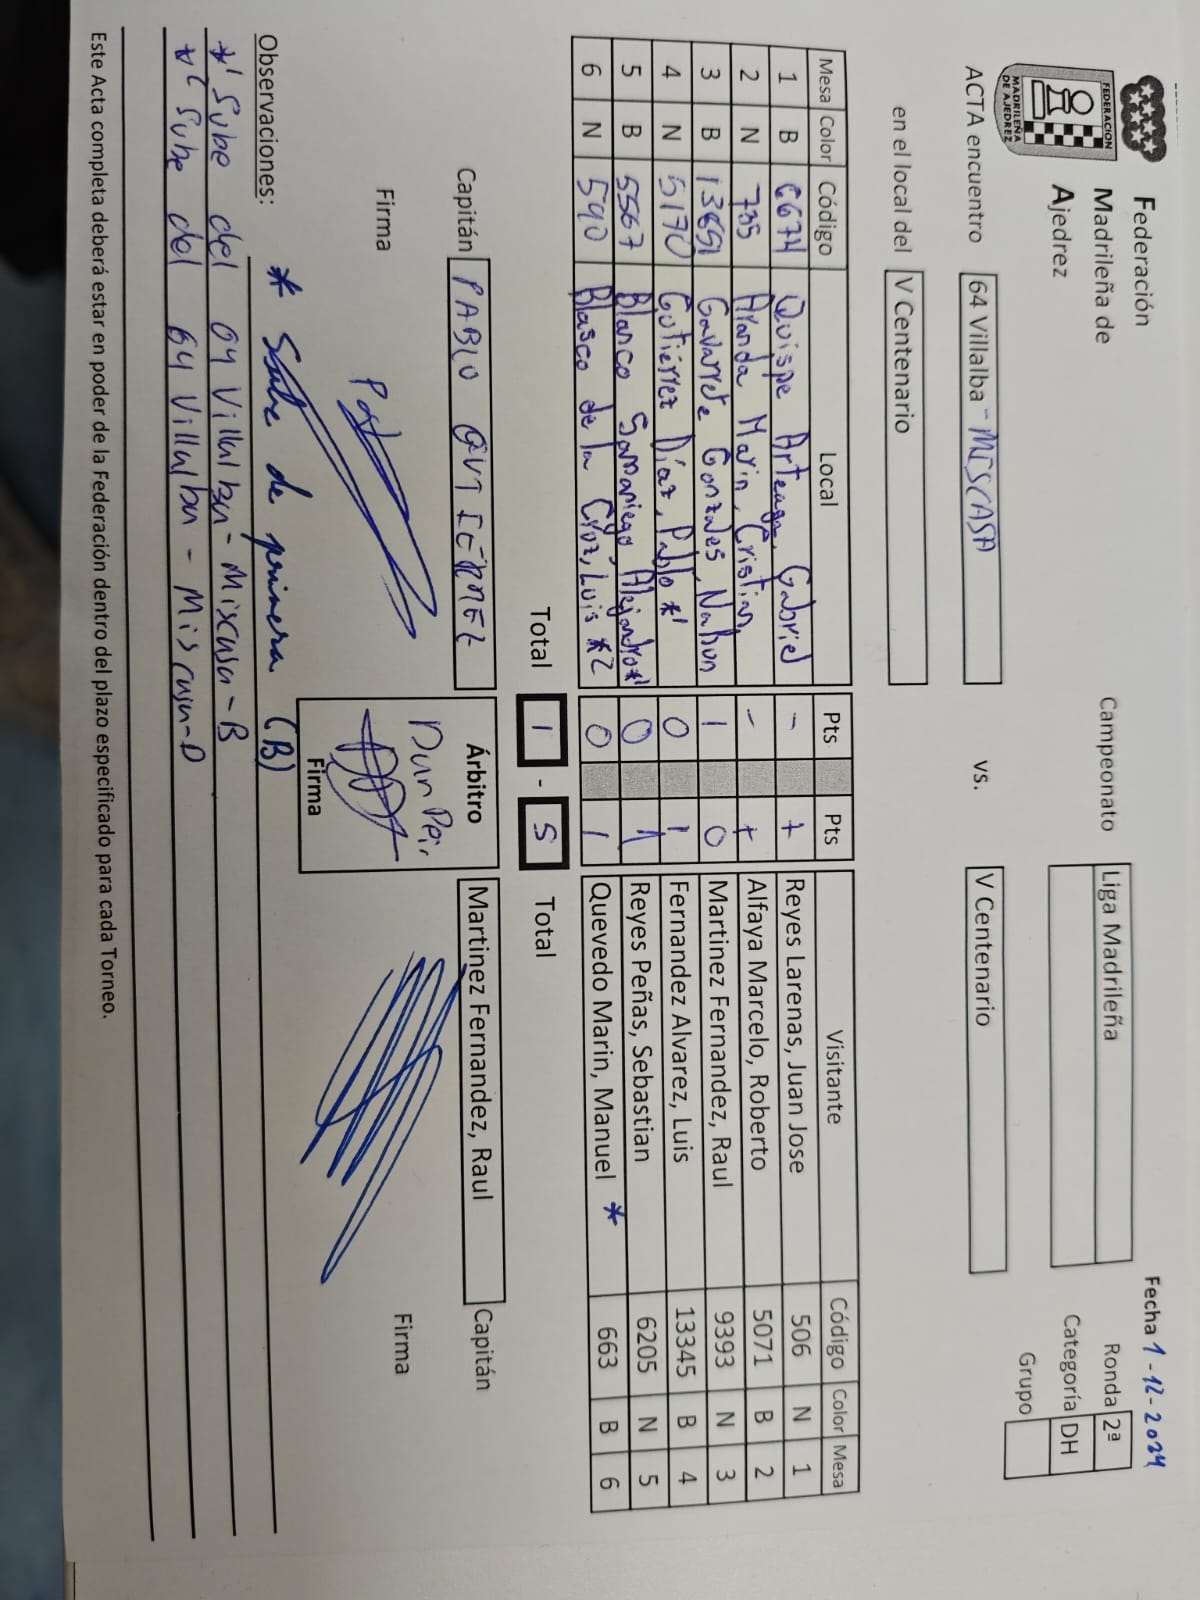 Federación
Madrileña de
Ajedrez
FEDERACION
MADRILEÑA
DE AJEDREZ
Fecha 1-12-2024
Campeonato Liga Madrileña Ronda 2ª
Categoría DH
Grupo
ACTA encuentro 64 Villalba - MISCASA vs. V Centenario
en el local del V Centenario
Mesa Color Código Local Pts Pts Visitante Código Color Mesa
1 B 6674 Quispe Arteaga, Gabriel - + Reyes Larenas, Juan Jose 506 N 1
2 N 735 Aranda Marin, Cristian - + Alfaya Marcelo, Roberto 5071 B 2
3 B 13651 Gavarrete Gonzales, Nahun 1 0 Martinez Fernandez, Raul 9393 N 3
4 N 5170 Gutiérrez Díaz, Pablo *1 0 1 Fernandez Alvarez, Luis 13345 B 4
5 B 5567 Blanco Samaniego, Alejandro *1 0 1 Reyes Peñas, Sebastian 6205 N 5
6 N 590 Blasco de la Cruz, Luis *2 0 1 Quevedo Marin, Manuel * 663 B 6
Total 1 - 5 Total
Capitán PABLO GUTIÉRREZ Árbitro Martinez Fernandez, Raul Capitán
Firma Firma Firma
Observaciones: * Sube de primera (B)
*1 Sube del 64 Villalba - Miscasa - B
*2 Sube del 64 Villalba - Miscasa - D
Este Acta completa deberá estar en poder de la Federación dentro del plazo especificado para cada Torneo.